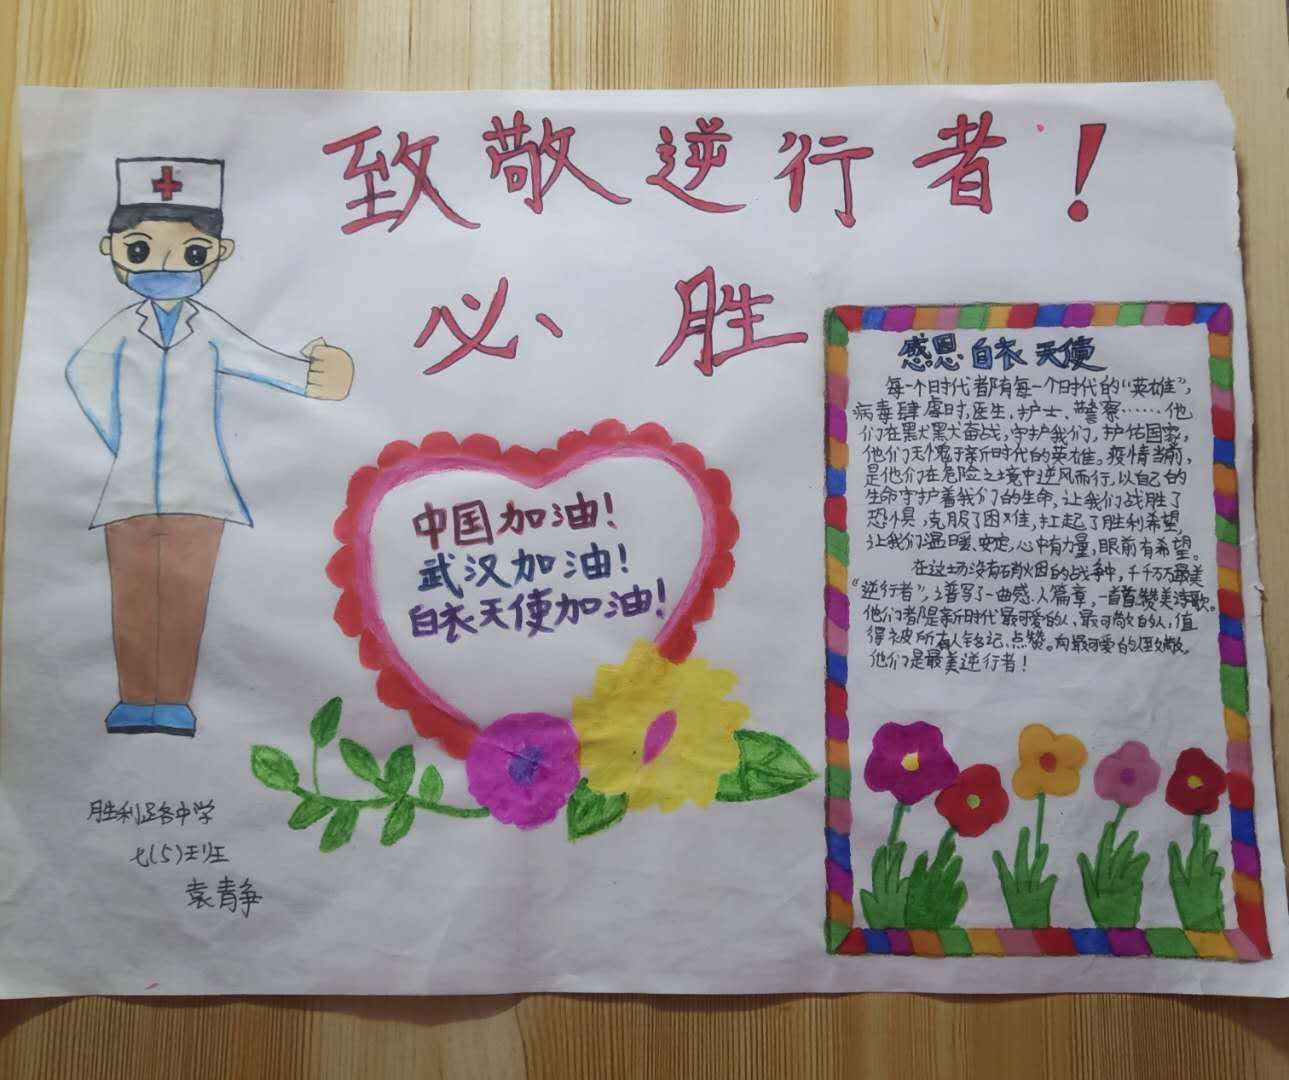 致敬逆行者！
必胜
中国加油！
武汉加油！
白衣天使加油！
感恩白衣天使
每一个时代都有每一个时代的“英雄”，
病毒肆虐时，医生、护士、警察……他
们在默默奋战，守护我们，护佑国家，
他们无愧于新时代的英雄。疫情当前，
是他们在危险之境中逆风而行，以自己的
生命守护着我们的生命，让我们战胜了
恐惧，克服了困难，扛起了胜利希望，
让我们温暖、安定，心中有力量，眼前有希望。
在这场没有硝烟的战争中，千千万万最美
“逆行者”，谱写了一曲感人篇章，一首首赞美诗歌。
他们都是新时代最可爱的人、最可敬的人，值
得被所有人铭记、点赞。向最可爱的人致敬，
他们是最美逆行者！
胜利路中学
七(5)班
袁静